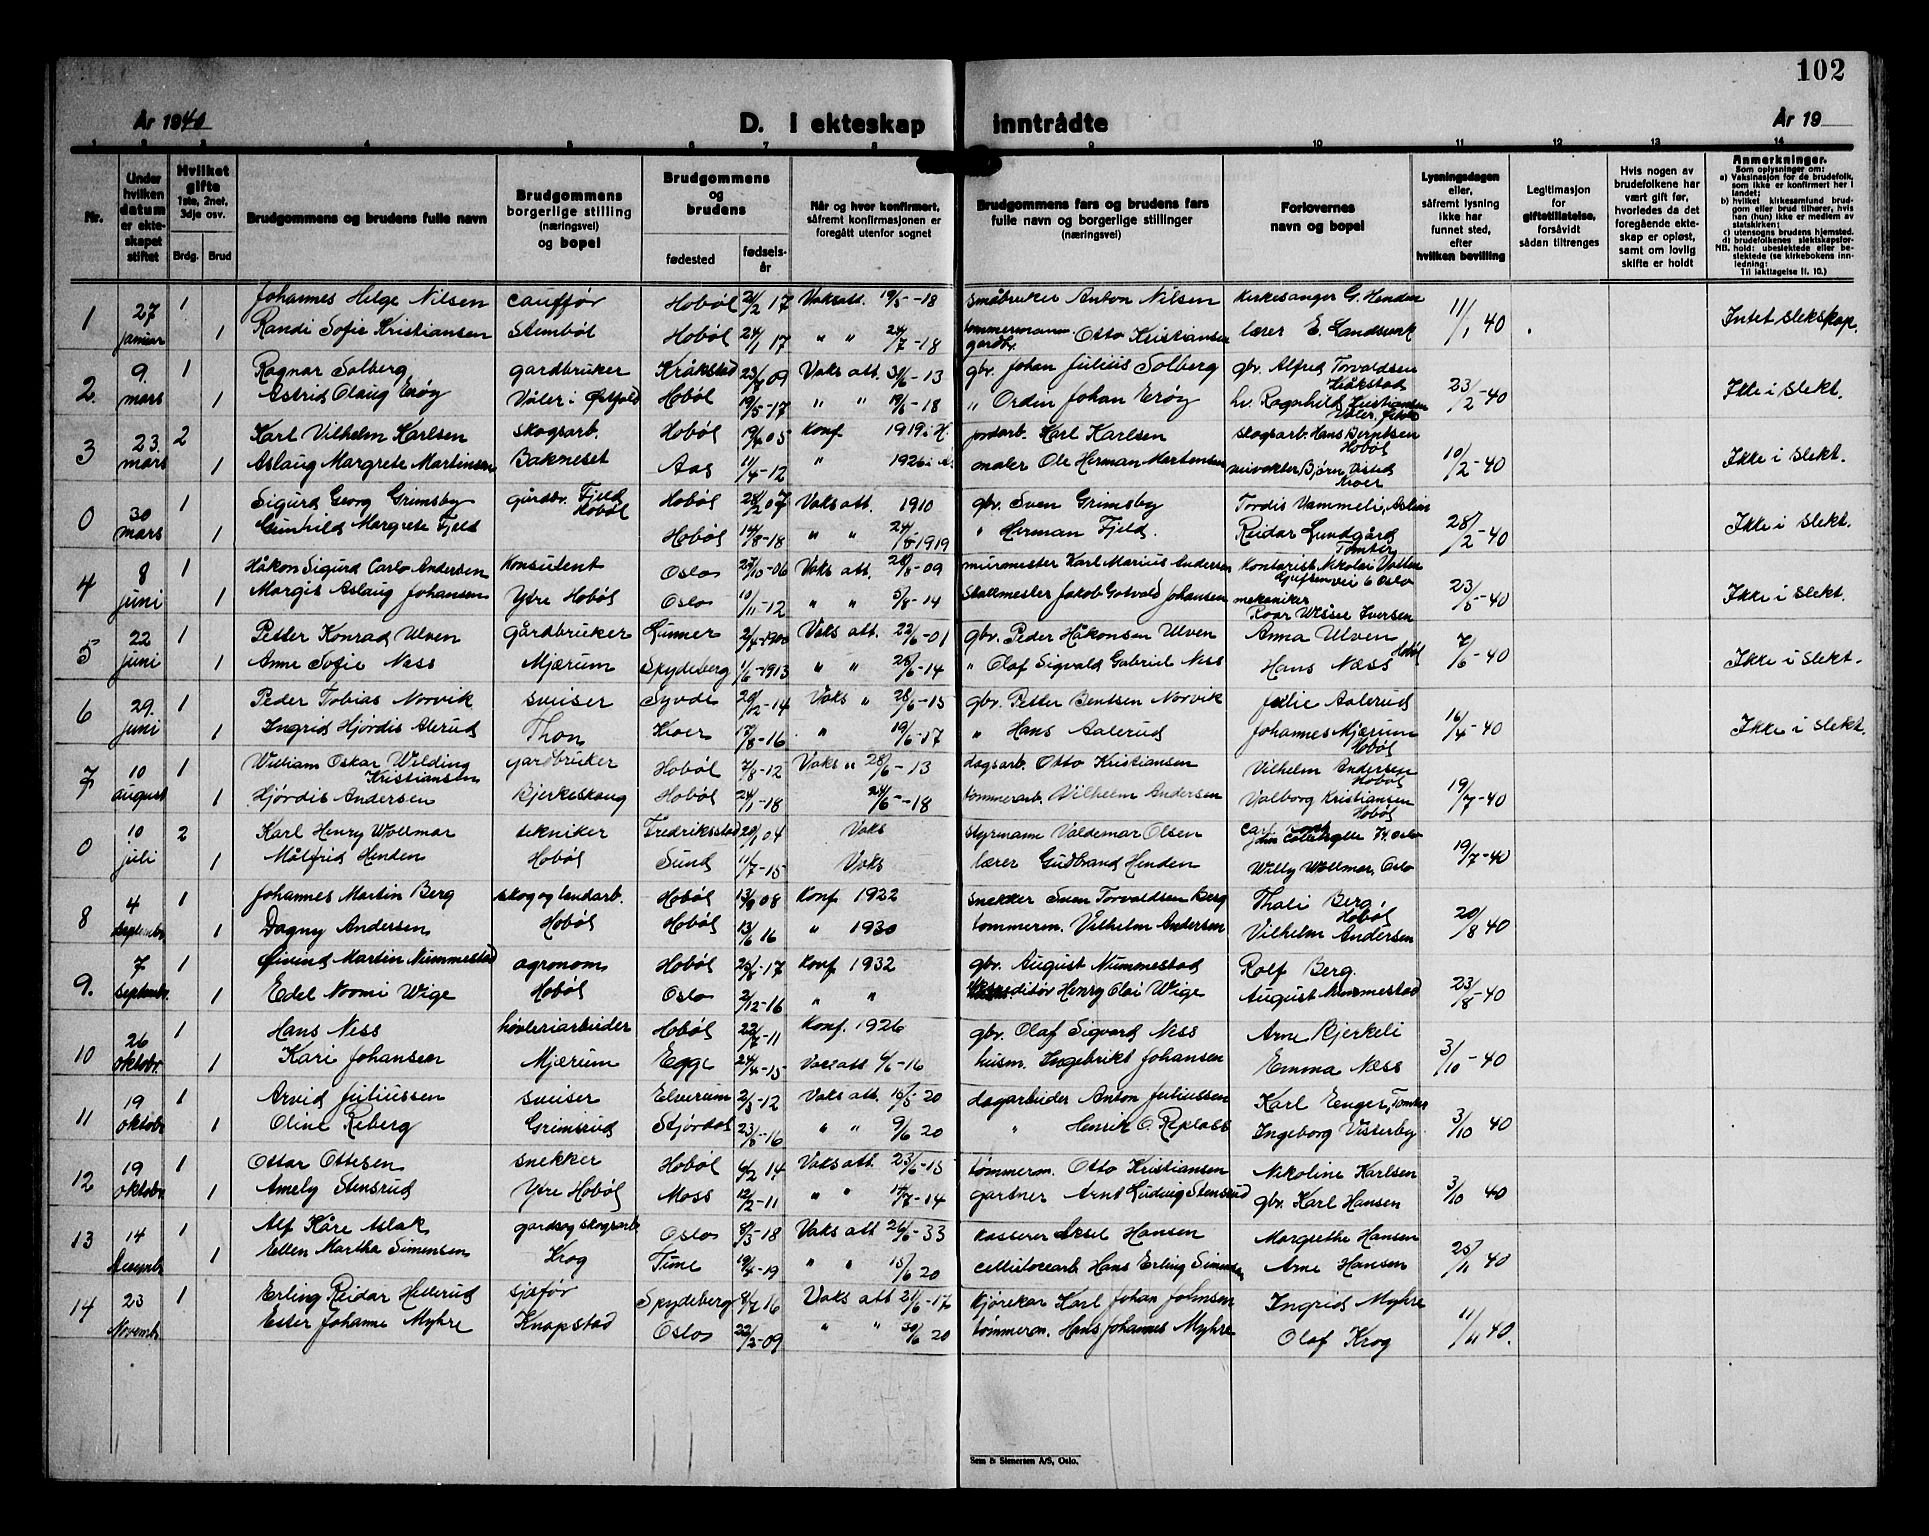 102
År 1940
D. I ekteskap inntrådte
År 19
1 2 3 4 5 6 7 8 9 10 11 12 13 14
Nr.
Under hvilken datum er ekteskapet stiftet
Hvilket gifte 1ste, 2net, 3dje osv.
Brdg. Brud
Brudgommens og brudens fulle navn
Brudgommens borgerlige stilling (næringsvei) og bopel
Brudgommens og brudens
fødested fødselsår
Når og hvor konfirmert, såfremt konfirmasjonen er foregått utenfor sognet
Brudgommens fars og brudens fars fulle navn og borgerlige stillinger (næringsvei)
Forlovernes navn og bopel
Lysningsdagen eller, såfremt lysning ikke har funnet sted, efter hvilken bevilling
Legitimasjon for giftetillatelse, forsåvidt sådan tiltrenges
Hvis nogen av brudefolkene har vært gift før, hvorledes da det foregående ekteskap er opløst, samt om lovlig skifte er holdt
Anmerkninger.
Som oplysninger om:
a) Vaksinasjon for de brudefolk, som ikke er konfirmert her i landet;
b) hvilket kirkesamfund brudgom eller brud tilhører, hvis han (hun) ikke er medlem av statskirken;
c) utensogns brudens hjemsted.
d) brudefolkenes slektskapsforhold: ubeslektede eller beslektede (se kirkebokens innledning:
NB. Til iakttagelse II. 10.)
1 27 1 Johannes Helge Nilsen cauffør Hobøl 2/2 17 Vaksatt. 19/5-18 småbruker Anton Nilsen kirkesanger G. Henden 11/1 40 Intet slekskap.
januar 1 Randi Sofie Kristiansen Stenbøl Hobøl 24/1 17 " " 24/7-18 tømmermann gardbr. Otto Kristiansen lærer E. Landsverk
2 9. 1 Ragnar Solberg gardbruker Kråkstad 09 Vaks att. 3/6-13 gbr. Johan Julius Solberg gbr. Alfred Torvaldsen Kråkstad 23/2-40 Ikke i slekt.
mars 1 Astrid Olaug Erøy Våler i Østfold Hobøl 19/5-17 " " 19/6-18 " Ordin Johan Erøy hv. Ragnhild Kristiansen
3 23. 2 Karl Vilhelm Karlsen skogsarb. Hobøl 05 Konf 1919 i H. jordarb. Karl Karlsen skogsarb. Hans Berntsen Hobøl 10/2-40 Ikke i slekt.
mars 1 Aslaug Margrete Martinsen Bakneset Aas 11/4-12 " 1926 maler Ole Herman Martensen veivokter Bjørn Visted Kroer
0 30 1 Sigurd Georg Grimsby gårdbr. Fjeld Hobøl Hobøl 28/2 07 Vaks att. 1910 gbr. Sven Grimsby Tordis Vammeli, 28/2-40 Ikke i slekt.
mars Gunhild Margrete Fjeld Hobøl 14/8-18 " " 24/8-1919 " Herman Fjeld. Reidar Lundgård Tomter
4 8 1 Håkon Sigurd Carlo Andersen Konsulent Oslo 27/10-06 Vaks att. 28/8-09 murmester Karl Marius Andersen Kontorist Nikolai Vatten 6 Oslo 23/5-40 Ikke i slekt.
juni 1 Margit Aslaug Johansen Ytre Hobøl Oslo 10/11-12 " " 5/8-14 Stallmester Jakob Gotvald Johansen mekaniker Roar Iversen
5 22 1 Petter Konrad Ulven gårdbruker Lunner 2/4-1900 Vaks att. 22/6-01 gbr. Peder Håkonsen Ulven Anna Ulven 7/6-40 Ikke i slekt.
juni 1 Anne Sofie Ness Mjærum Spydeberg 1/6-1913 " " 28/6-14 " Olaf Sigvald Gabriel Ness Hans Næss Hobøl
6 29. 1 Peder Tobias Norvik sveiser Syvde 20/12-14 Vaks " 28/6-15 gbr. Petter Bentsen Norvik Julie Aalerud 16/4-40 Ikke i slekt.
juni 1 Ingrid Hjørdis Alerud Thon Kroer 17/8-16 " 19/6-17 " Hans Aalerud Johannes Mjærum Hobøl
7 10 1 William Oskar Wilding Kristiansen gardbruker Hobøl 7/8-12 Vaks " 28/6-13 dagsarb. Otto Kristiansen Vilhelm Andersen Hobøl 19/7-40
august 1 Hjørdis Andersen Bjerkeskaug Hobøl 24/1-18 24/6-18 tømmerarb. Vilhelm Andersen Valborg Kristiansen Hobøl
0 10 2 Karl Henry Wollmar tekniker Fredriksstad 04 Vaks styrmann Valdemar Olsen 19/7-40
juli 1 Målfrid Henden Hobøl Sund 11/7-15 Vaks lærer Gudbrand Henden Willy Wollmar, Oslo
8 4 1 Johannes Martin Berg skog og landarb. Hobøl 13/9 08 Konf 1922 snekker Sven Torvaldsen Berg Thali Berg, Hobøl 20/8 40
septembr 1 Dagny Andersen Hobøl Hobøl 13/6 16 " 1930 tømmerm. Vilhelm Andersen Vilhelm Andersen
9. 7 1 Øivind Martin Nummestad agronom Hobøl 17 Konf 1932 gbr. August Nummestad Rolf Berg. 23/8-40
septembr. 1 Edel Noomi Wige Hobøl Oslo 2/12-16 " " Henry Olai Wige August Nummestad
10 26 1 Hans Ness høvleriarbeider Hobøl 22/7-11 Konf. 1926 gbr. Olaf Sigvard Ness Arne Bjerkeli 3/10-40
oktobr. 1 Kari Johansen Mjærum Egge 24/4-15 Vaks att 4/6-16 husm. Ingebrikt Johansen Emma Næss
11 19 1 Arvid Juliussen sveiser Elverum 2/3-12 Vaks att. 15/5 20 dagarbeider Anton Juliussen Karl Enger, Tomter 3/10 40
oktobr 1 Oline Reberg Grimsrud Stjørdal 16 " " 9/6 20 " Henrik O. Repløss Ingeborg Visterby
12 19 1 Ottar Ottesen snekker Hobøl 6/2 14 Vaks att. 23/6-15 tømmerm. Otto Kristiansen Nikoline Karlsen 3/10 40
oktobr 1 Amely Stensrud Ytre Hobøl Moss 12/2-11 " " 14/7-14 gartner Arnt Ludvig Stensrud gbr. Karl Hansen
13 14 1 Alf Kåre Aslak gards og skogsarb Oslo 8/3-18 Vaks att 26/6-33 kasserer Aksel Hansen Margrethe Hansen 25/11 40
Desembr 1 Ellen Martha Simensen Krog Tune 19/4-19 " " 15/6 20 cellulosearb. Hans Erling Simensen Arne Hansen
14 23 1 Erling Reidar Hellerud sjåfør Spydeberg 8/7 16 Vaks att 21/6-17 kjørekar Karl Johan Johnsen Ingrid Myhre 11/11 40.
Novembr. Ester Johanne Myhre Knapstad Oslo 22/2-09 " " 30/6 20 tømmerm. Hans Johannes Myhre Olaf Krog
Sem & Stenersen A/S, Oslo.